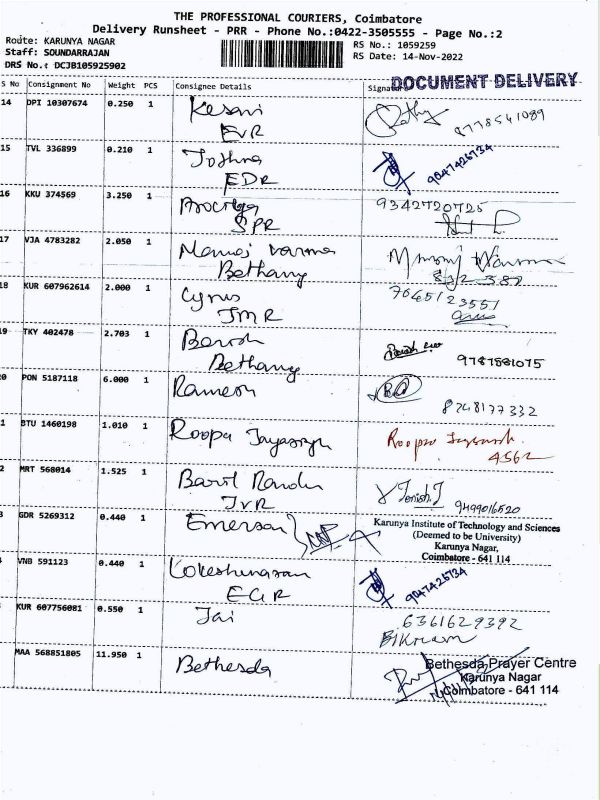 THE PROFESSIONAL COURIERS, Coimbatore
Delivery Runsheet - PRR - Phone No.:0422-3505555 - Page No.:2
Route: KARUNYA NAGAR
RS No.: 1059259
Staff: SOUNDARRAJAN
RS Date: 14-Nov-2022
DRS No.: DCJB105925902
DOCUMENT DELIVERY
S No Consignment No Weight PCS Consignee Details Signat
14 DPI 10307674 0.250 1 Kesavi
EVR 8778541089
15 TVL 336899 0.210 1 Joshna
EDR 9047426734
16 KKU 374569 3.250 1 9342720725
SPR
17 VJA 4783282 2.050 1 Manoj Varma Manoj Varma
Bethany
18 KUR 607962614 2.000 1 Cyrus 7065123551
JMR
19 TKY 402478 2.703 1
Bethany 9787581075
0 PON 5187118 6.000 1 Ramesh
8248177332
1 BTU 1460198 1.010 1 Roopa
Roopa
4562
2 MRT 568014 1.525 1
JVR 9499016520
3 GDR 5269312 0.440 1 Emerson
Karunya Institute of Technology and Sciences
(Deemed to be University)
Karunya Nagar,
Coimbatore - 641 114
VNB 591123 0.440 1
EGR 9047426734
KUR 607756081 0.550 1 Jai 6361629392
MAA 568851805 11.950 1 Bethesda
Bethesda Prayer Centre
Karunya Nagar
Coimbatore - 641 114